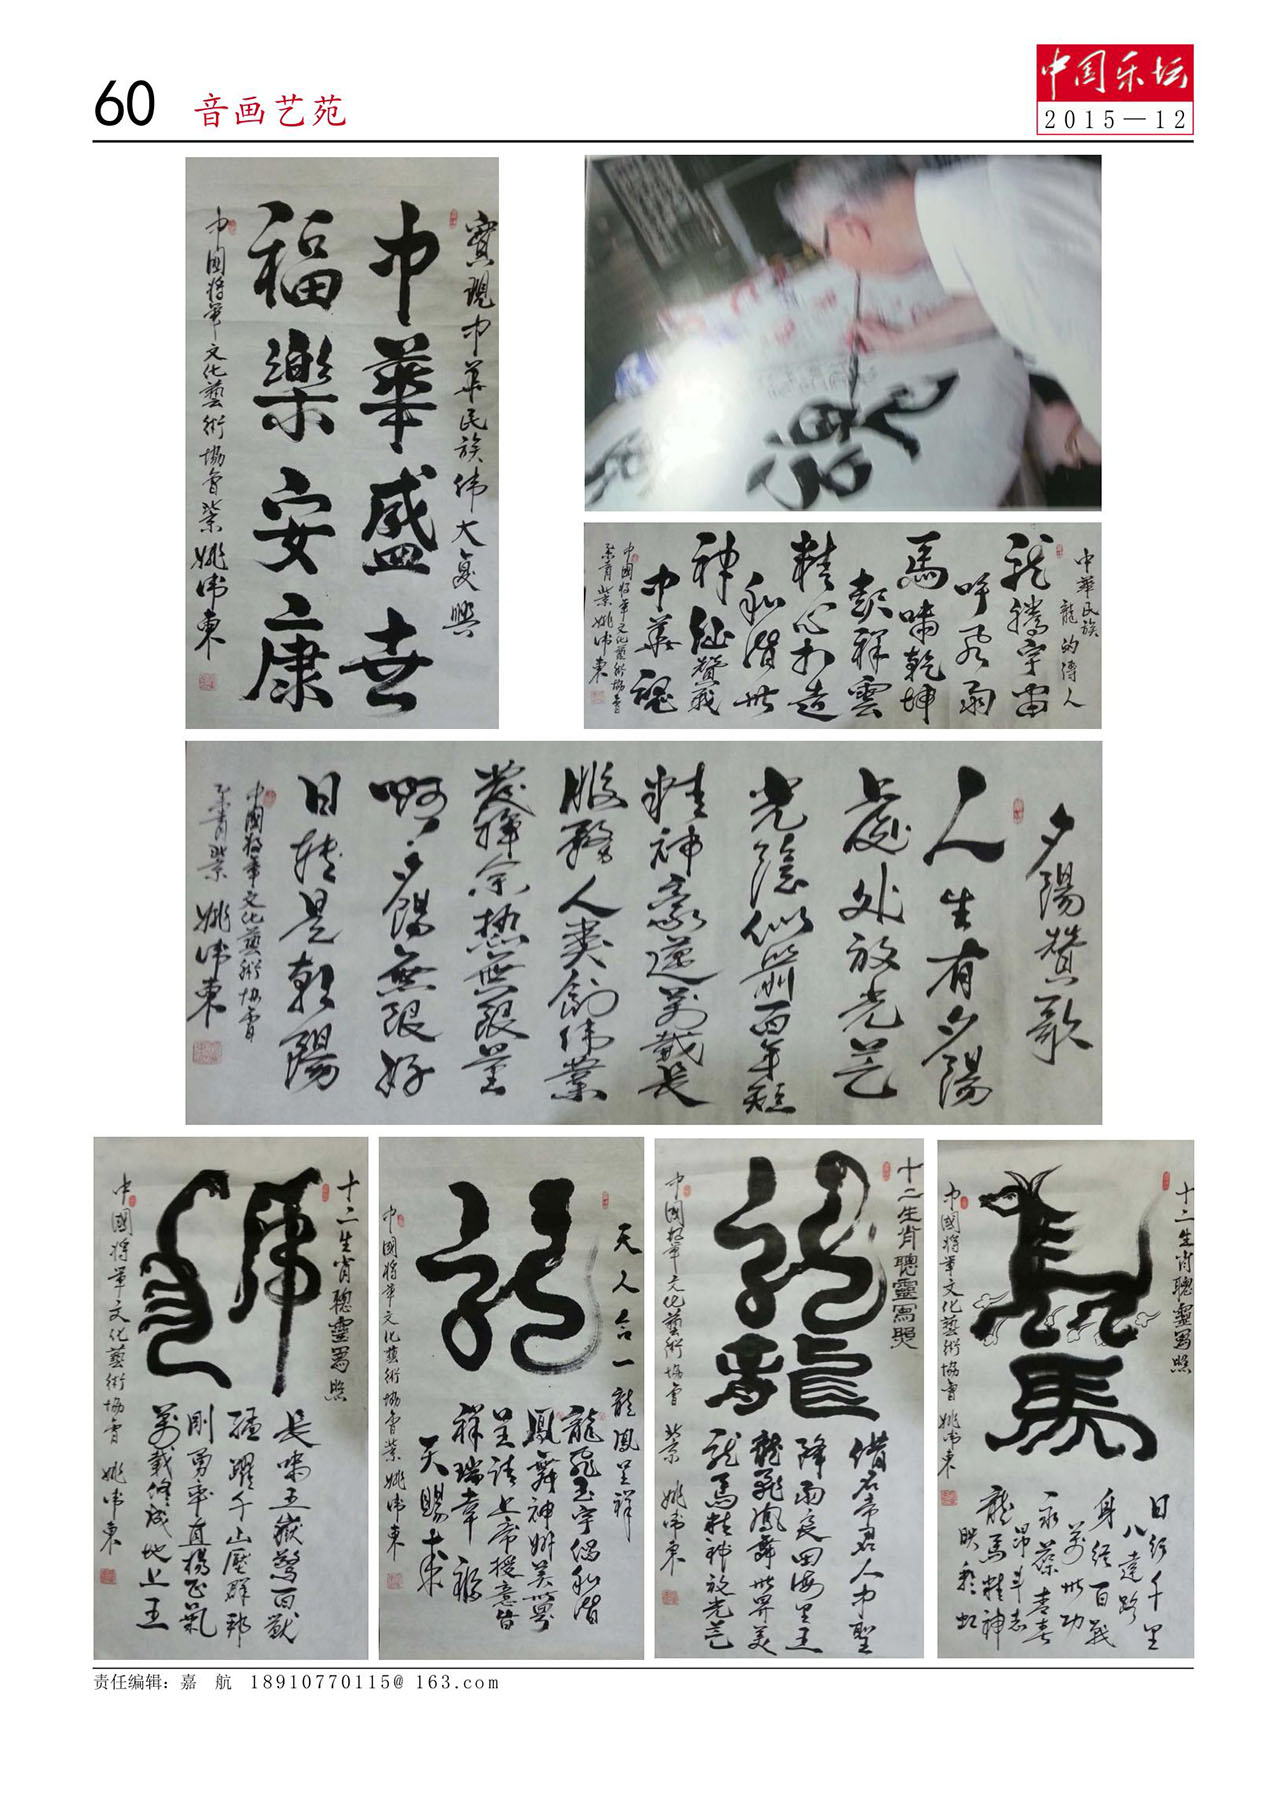 60 音画艺苑
中国乐坛
2015—12
實現中华民族伟大复興
中華盛世
福樂安康
中國将军文化藝術協會
姚伟東
中華民族
龍的傳人
龙腾宇宙
呼风雨
馬嘯乾坤
彩祥雲
精心打造
和谐世
神仙赞载
中華魂
中國将军文化藝術協會
姚伟東
夕陽赞歌
人生有夕陽
处处放光芒
光陰似箭百年短
精神豪邁萬載长
服務人类創伟業
發揮余热無限量
啊夕陽無限好
日转是朝陽
中國将军文化藝術協會
姚伟東
十二生肖聰靈写照
虎
长啸五嶽驚百獸
猛躍千山壓群邪
剛勇率直揚正氣
萬載修成地上王
中國将军文化藝術協會 姚伟東
天人合一 龍鳳呈祥
龍
龍飛玉宇偶和谐
鳳舞神州美
呈请上帝授意旨
祥瑞幸福
天賜来
中國将军文化藝術協會 姚伟東
十二生肖聰靈寫照
龍
借名帝君人中聖
降雨良田海里王
龍飛鳳舞世界美
龙馬精神放光芒
中國将军文化藝術協會 姚伟東
十二生肖聰靈写照
馬
日行千里
八達路
身经百战
萬世功
永葆青春
昂斗志
龍馬精神
映彩虹
中國将军文化藝術協會 姚伟東
责任编辑：嘉 航 18910770115@163.com